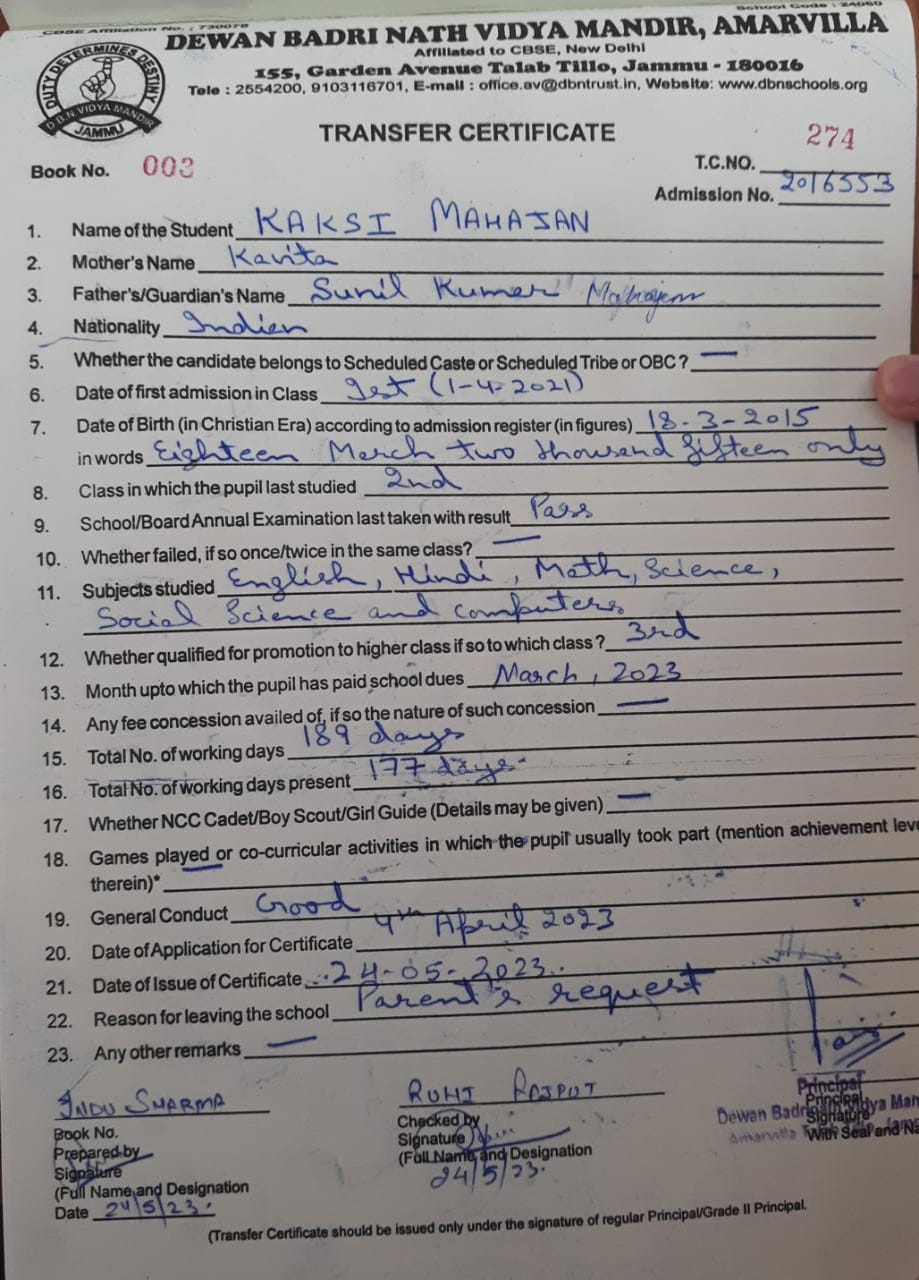 CBSE Affiliation No. : 730078
School Code : 24060
DEWAN BADRI NATH VIDYA MANDIR, AMARVILLA
Affiliated to CBSE, New Delhi
155, Garden Avenue Talab Tillo, Jammu - 180016
Tele : 2554200, 9103116701, E-mail : office.av@dbntrust.in, Website: www.dbnschools.org
DUTY DETERMINES DESTINY
D.B.N. VIDYA MANDIR
JAMMU
TRANSFER CERTIFICATE
Book No. 003
T.C.NO. 274
Admission No. 2016553
1. Name of the Student KAKSI MAHAJAN
2. Mother's Name Kavita
3. Father's/Guardian's Name Sunil Kumar Mahajan
4. Nationality Indian
5. Whether the candidate belongs to Scheduled Caste or Scheduled Tribe or OBC ? —
6. Date of first admission in Class Ist (1-4-2021)
7. Date of Birth (in Christian Era) according to admission register (in figures) 18-3-2015
in words Eighteen March two thousand fifteen only
8. Class in which the pupil last studied 2nd
9. School/Board Annual Examination last taken with result Pass
10. Whether failed, if so once/twice in the same class? —
11. Subjects studied English, Hindi, Math, Science,
Social Science and computers
12. Whether qualified for promotion to higher class if so to which class ? 3rd
13. Month upto which the pupil has paid school dues March, 2023
14. Any fee concession availed of, if so the nature of such concession —
15. Total No. of working days 189 days
16. Total No. of working days present 177 days
17. Whether NCC Cadet/Boy Scout/Girl Guide (Details may be given) —
18. Games played or co-curricular activities in which the pupil usually took part (mention achievement leve
therein)* —
19. General Conduct Good
20. Date of Application for Certificate 4th April 2023
21. Date of Issue of Certificate 24-05-2023
22. Reason for leaving the school Parent's request
23. Any other remarks —
INDU SHARMA
Book No.
Prepared by
Signature
(Full Name and Designation
Date 24/5/23.
RUHI RAJPUT
Checked by
Signature
(Full Name and Designation
24/5/23.
Principal
Principal
Signature
With Seal and Na
(Transfer Certificate should be issued only under the signature of regular Principal/Grade II Principal.